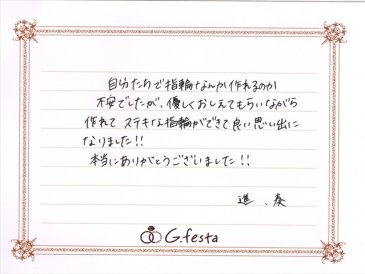 自分たちで指輪なんか作れるのか
不安でしたが、優しくおしえてもらいながら
作れて ステキな指輪ができて良い思い出に
なりました!!
本当にありがとうございました!!
進、奏
G.festa